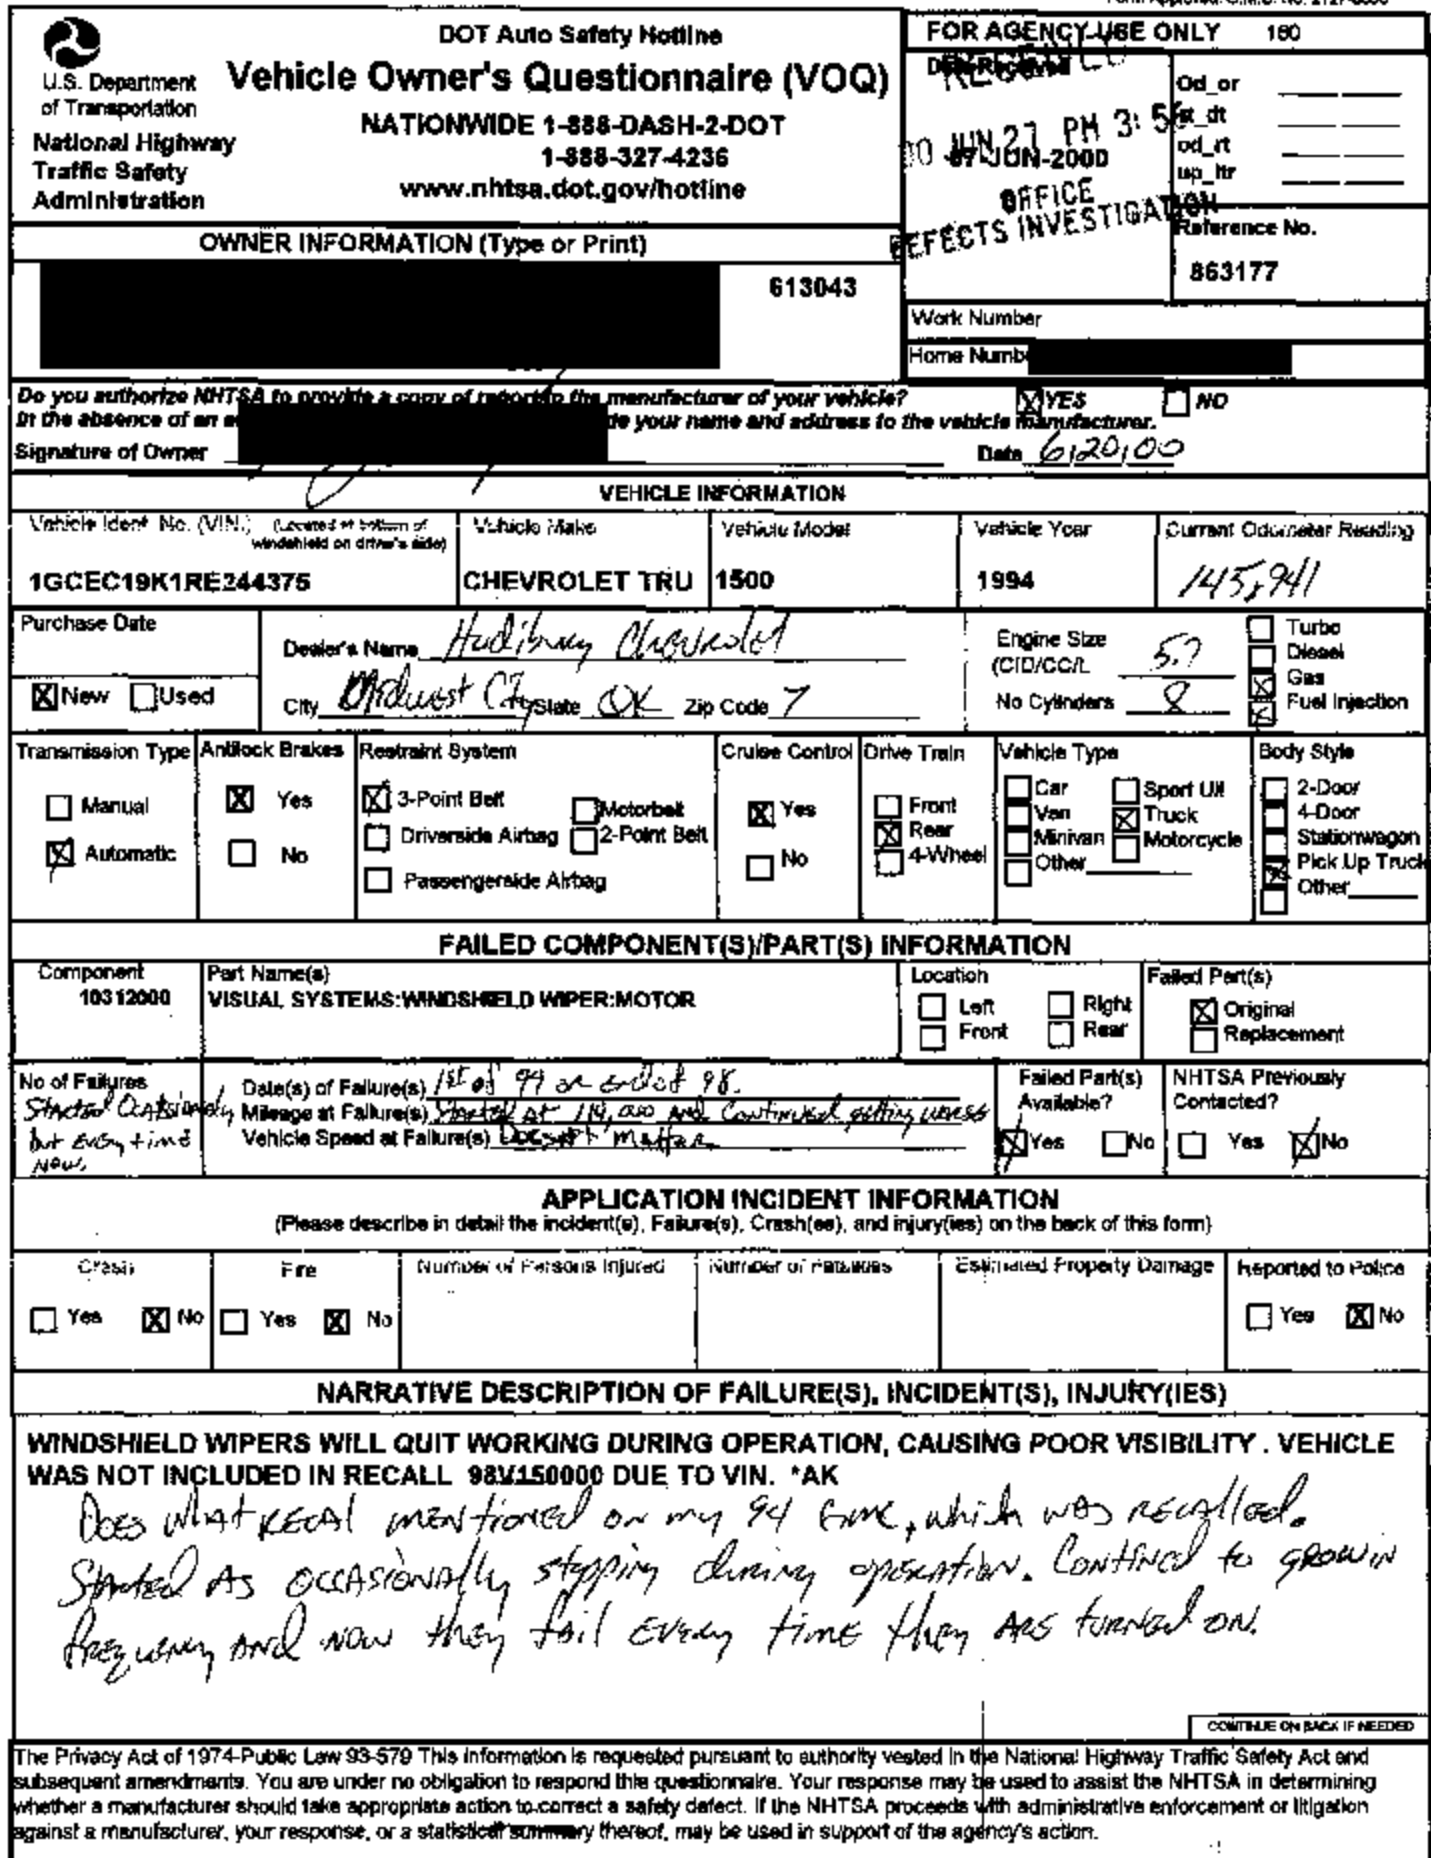 DOT Auto Safety Hotline
Vehicle Owner's Questionnaire (VOQ)
NATIONWIDE 1-888-DASH-2-DOT
1-888-327-4236
www.nhtsa.dot.gov/hotline
U.S. Department
of Transportation
National Highway
Traffic Safety
Administration
FOR AGENCY USE ONLY 160
Date Received
00 JUN 27 PM 3:56
07-JUN-2000
OFFICE
DEFECTS INVESTIGATION
Od_or
st_dt
od_rt
up_ltr
Reference No.
863177
OWNER INFORMATION (Type or Print)
613043
Work Number
Home Numb
Do you authorize NHTSA to provide a copy of report to the manufacturer of your vehicle? YES NO
In the absence of an de your name and address to the vehicle manufacturer.
Signature of Owner Date 6,20,00
VEHICLE INFORMATION
Vehicle Ident. No. (VIN.) (Located at bottom of windshield on driver's side) Vehicle Make Vehicle Model Vehicle Year Current Odometer Reading
1GCEC19K1RE244375 CHEVROLET TRU 1500 1994 145,941
Purchase Date
New Used
Dealer's Name Hudiburg Chevrolet
City Midwest City State OK Zip Code 7
Engine Size
(CID/CC/L 5.7
No Cylinders 8
Turbo
Diesel
Gas
Fuel Injection
Transmission Type
Manual
Automatic
Antilock Brakes
Yes
No
Restraint System
3-Point Belt Motorbelt
Driverside Airbag 2-Point Belt
Passengerside Airbag
Cruise Control
Yes
No
Drive Train
Front
Rear
4-Wheel
Vehicle Type
Car Sport Util
Van Truck
Minivan Motorcycle
Other
Body Style
2-Door
4-Door
Stationwagon
Pick Up Truck
Other
FAILED COMPONENT(S)/PART(S) INFORMATION
Component
10312000
Part Name(s)
VISUAL SYSTEMS:WINDSHIELD WIPER:MOTOR
Location
Left Right
Front Rear
Failed Part(s)
Original
Replacement
No of Failures
Started Occasionally
but every time
now.
Date(s) of Failure(s) 1st of 99 or end of 98.
Mileage at Failure(s) Started at 114,000 and continued getting worse
Vehicle Speed at Failure(s) Doesn't matter
Failed Part(s)
Available?
Yes No
NHTSA Previously
Contacted?
Yes No
APPLICATION INCIDENT INFORMATION
(Please describe in detail the incident(s), Failure(s), Crash(es), and injury(ies) on the back of this form)
Crash Fire Number of Persons Injured Number of Fatalities Estimated Property Damage Reported to Police
Yes No Yes No Yes No
NARRATIVE DESCRIPTION OF FAILURE(S), INCIDENT(S), INJURY(IES)
WINDSHIELD WIPERS WILL QUIT WORKING DURING OPERATION, CAUSING POOR VISIBILITY . VEHICLE
WAS NOT INCLUDED IN RECALL 98V150000 DUE TO VIN. *AK
Does what recal mentioned on my 94 GMC, which was recalled.
Started as occasionally stopping during operation. Contined to grow in
frequency and now they fail every time they are turned on.
CONTINUE ON BACK IF NEEDED
The Privacy Act of 1974-Public Law 93-579 This information is requested pursuant to authority vested in the National Highway Traffic Safety Act and
subsequent amendments. You are under no obligation to respond this questionnaire. Your response may be used to assist the NHTSA in determining
whether a manufacturer should take appropriate action to correct a safety defect. If the NHTSA proceeds with administrative enforcement or litigation
against a manufacturer, your response, or a statistical summary thereof, may be used in support of the agency's action.